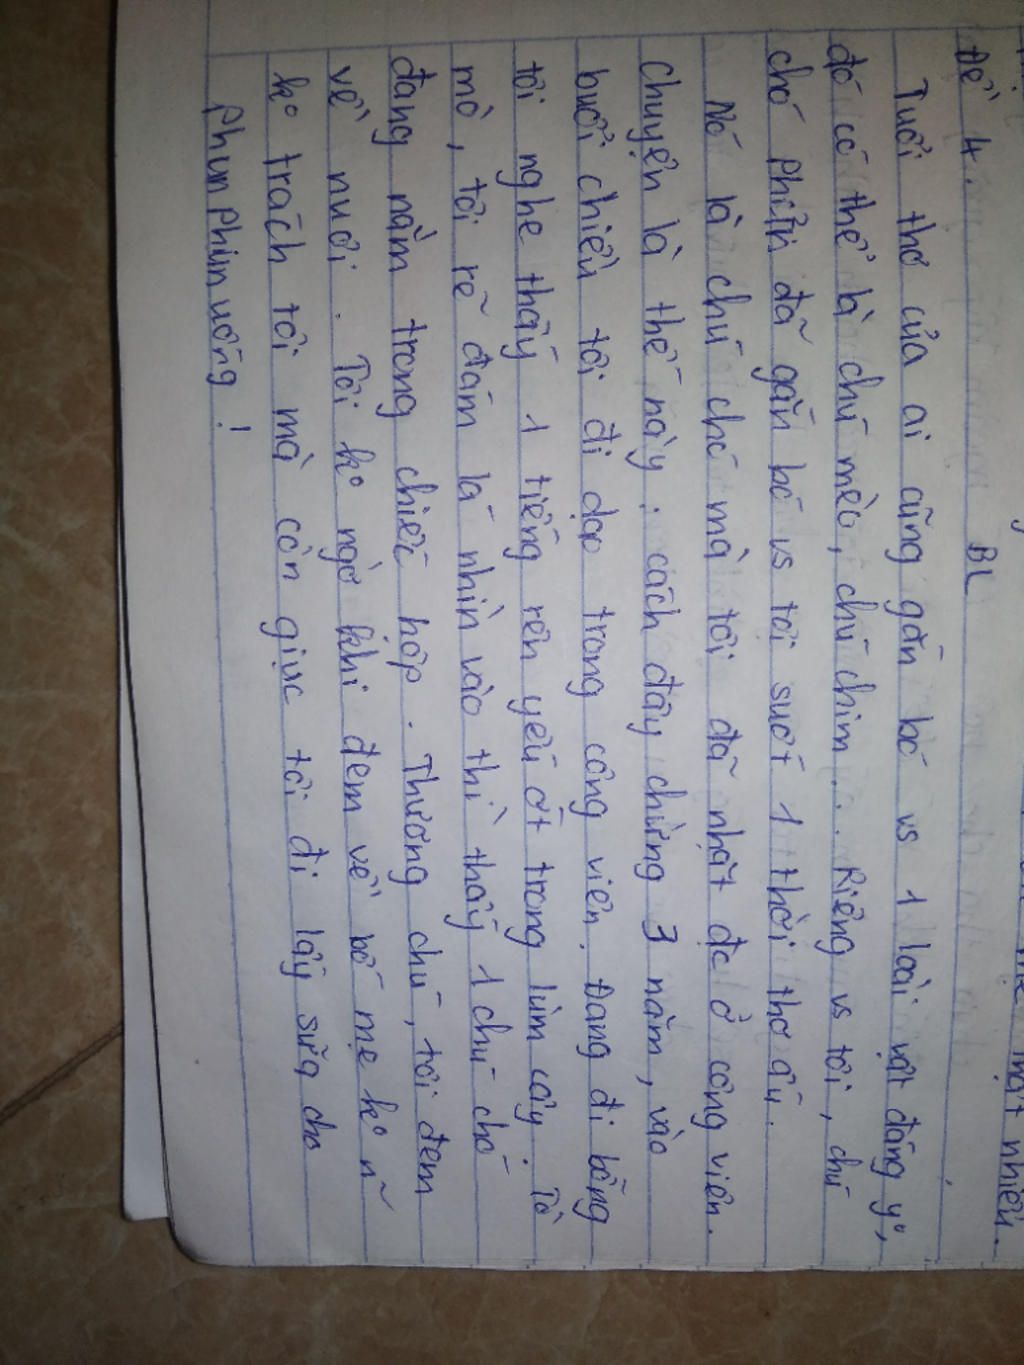 Đề 4.
BL
Tuổi thơ của ai cũng gắn bó vs 1 loài vật đáng yo,
đó có thể là chú mèo, chú chim... Riêng vs tôi, chú
chó Phun đã gắn bó vs tôi suốt 1 thời thơ ấu.
Nó là chú chó mà tôi đã nhặt đc ở công viên.
Chuyện là thế này : cách đây chừng 3 năm, vào
buổi chiều tôi đi dạo trong công viên. Đang đi bỗng
tôi nghe thấy 1 tiếng rên yếu ớt trong lùm cây. Tò
mò, tôi rẽ đám lá nhìn vào thì thấy 1 chú chó
đang nằm trong chiếc hộp. Thương chú, tôi đem
về nuôi. Tôi ko ngờ khi đem về bố mẹ ko n~
ko trách tôi mà còn giục tôi đi lấy sữa cho
Phun Phun uống!
mật nhiều.